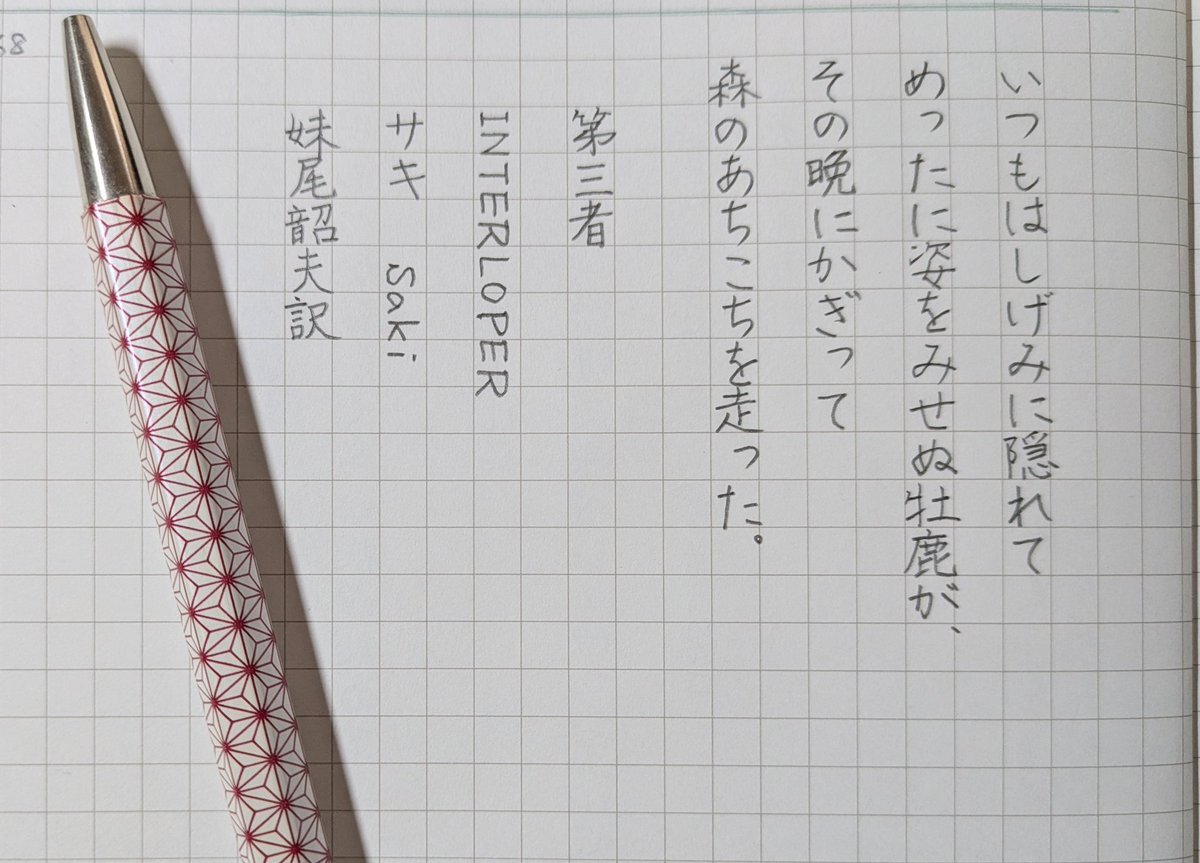 いつもはしげみに隠れて
めったに姿をみせぬ牡鹿が、
その晩にかぎって
森のあちこちを走った。
第三者
INTERLOPER
サキ Saki
妹尾韶夫訳